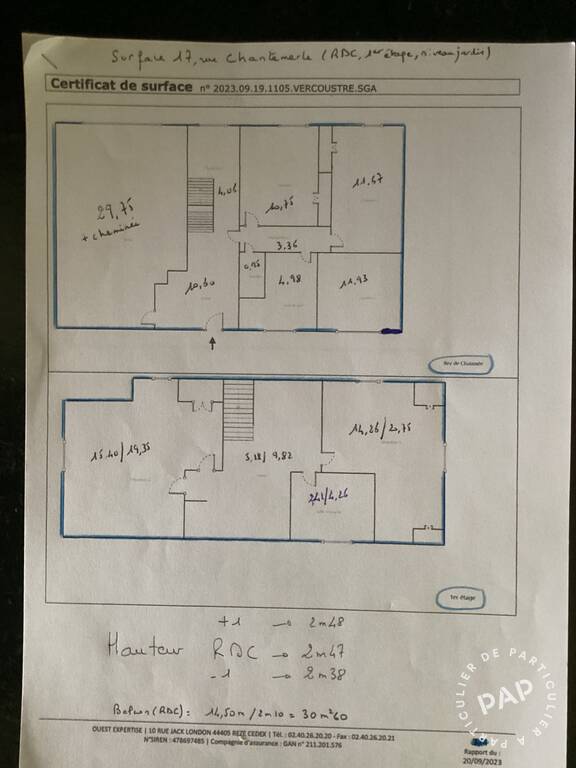 Surface 17, rue Chantemerle (RDC, 1er étage, niveau jardin)
Certificat de surface n° 2023.09.19.1105.VERCOUSTRE.SGA
29,75
+ cheminée
4,06
10,75
11,67
3,36
0,95
10,60
4,98
11,93
Rez de Chaussée
15.40/19,35
5,18/9,82
14,26/20,75
2,41/4,26
1er étage
+1 → 2m48
Hauteur RDC → 2m47
-1 → 2m38
Balcon (RDC) : 14,50m/2m10 = 30m²60
OUEST EXPERTISE | 10 RUE JACK LONDON 44405 REZE CEDEX | Tél : 02.40.26.20.20 - Fax : 02.40.26.20.21
N°SIREN : 478697485 | Compagnie d'assurance : GAN n° 211.201.576
Rapport du :
20/09/2023
DE PARTICULIER À PARTICULIER
PAP